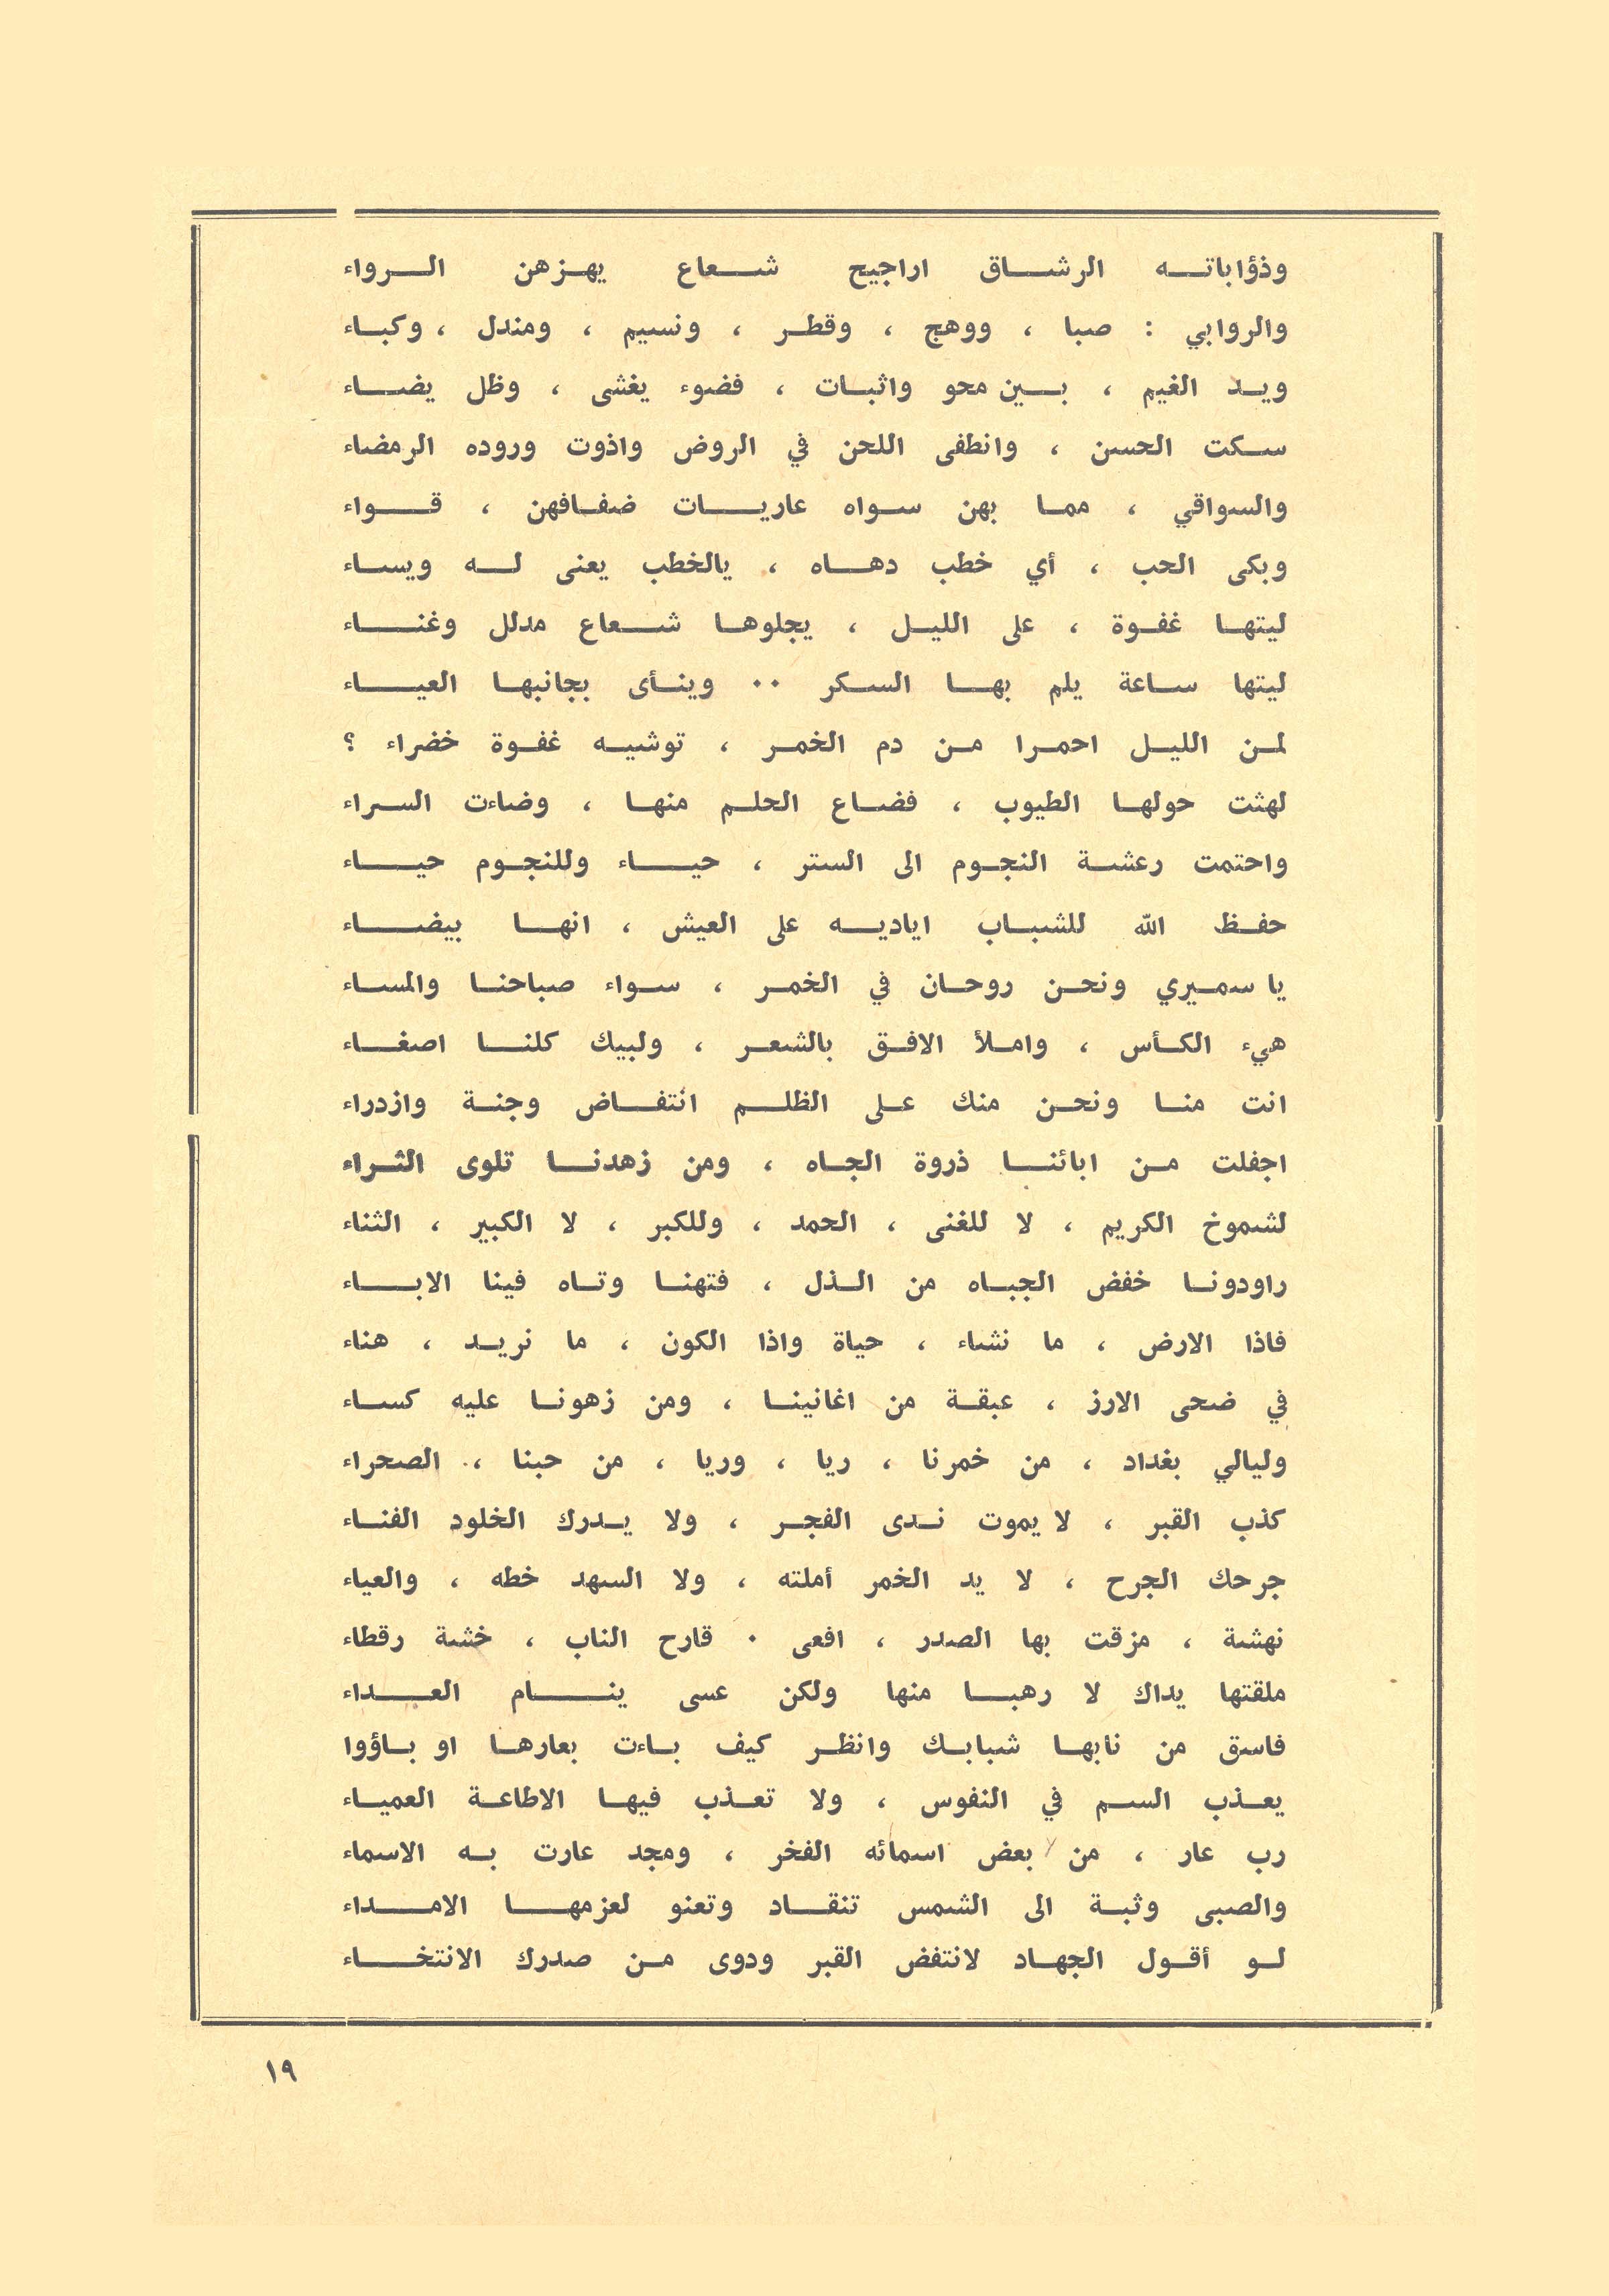 وذؤاباته الرشاق اراجيح شعاع يهزهن الرواء
والروابي : صبا ، ووهج ، وقطر ، ونسيم ، ومندل ، وكباء
ويد الغيم ، بين محو واثبات ، فضوء يغشى ، وظل يضاء
سكت الحسن ، وانطفى اللحن في الروض واذوت وروده الرمضاء
والسواقي ، مما بهن سواه عاريات ضفافهن ، قواء
وبكى الحب ، أي خطب دهاه ، يالخطب يعنى له ويساء
ليتها غفوة ، على الليل ، يجلوها شعاع مدلل وغناء
ليتها ساعة يلم بها السكر ٠٠ وينأى بجانبها العياء
لمن الليل احمرا من دم الخمر ، توشيه غفوة خضراء ؟
لهثت حولها الطيوب ، فضاع الحلم منها ، وضاءت السراء
واحتمت رعشة النجوم الى الستر ، حياء وللنجوم حياء
حفظ الله للشباب اياديه على العيش ، انها بيضاء
يا سميري ونحن روحان في الخمر ، سواء صباحنا والمساء
هيء الكأس ، واملأ الافق بالشعر ، ولبيك كلنا اصغاء
انت منا ونحن منك على الظلم انتفاض وجنة وازدراء
اجفلت من ابائنا ذروة الجاه ، ومن زهدنا تلوى الثراء
لشموخ الكريم ، لا للغنى ، الحمد ، وللكبر ، لا الكبير ، الثناء
راودونا خفض الجباه من الذل ، فتهنا وتاه فينا الاباء
فاذا الارض ، ما نشاء ، حياة واذا الكون ، ما نريد ، هناء
في ضحى الارز ، عبقة من اغانينا ، ومن زهونا عليه كساء
وليالي بغداد ، من خمرنا ، ريا ، وريا ، من حبنا ، الصحراء
كذب القبر ، لا يموت ندى الفجر ، ولا يدرك الخلود الفناء
جرحك الجرح ، لا يد الخمر أملته ، ولا السهد خطه ، والعياء
نهشة ، مزقت بها الصدر ، افعى ٠ قارح الناب ، خشة رقطاء
ملقتها يداك لا رهبا منها ولكن عسى ينام العداء
فاسق من نابها شبابك وانظر كيف باءت بعارها او باؤوا
يعذب السم في النفوس ، ولا تعذب فيها الاطاعة العمياء
رب عار ، من بعض اسمائه الفخر ، ومجد عارت به الاسماء
والصبى وثبة الى الشمس تنقاد وتعنو لعزمها الامداء
لو أقول الجهاد لانتفض القبر ودوى من صدرك الانتخاء
١٩